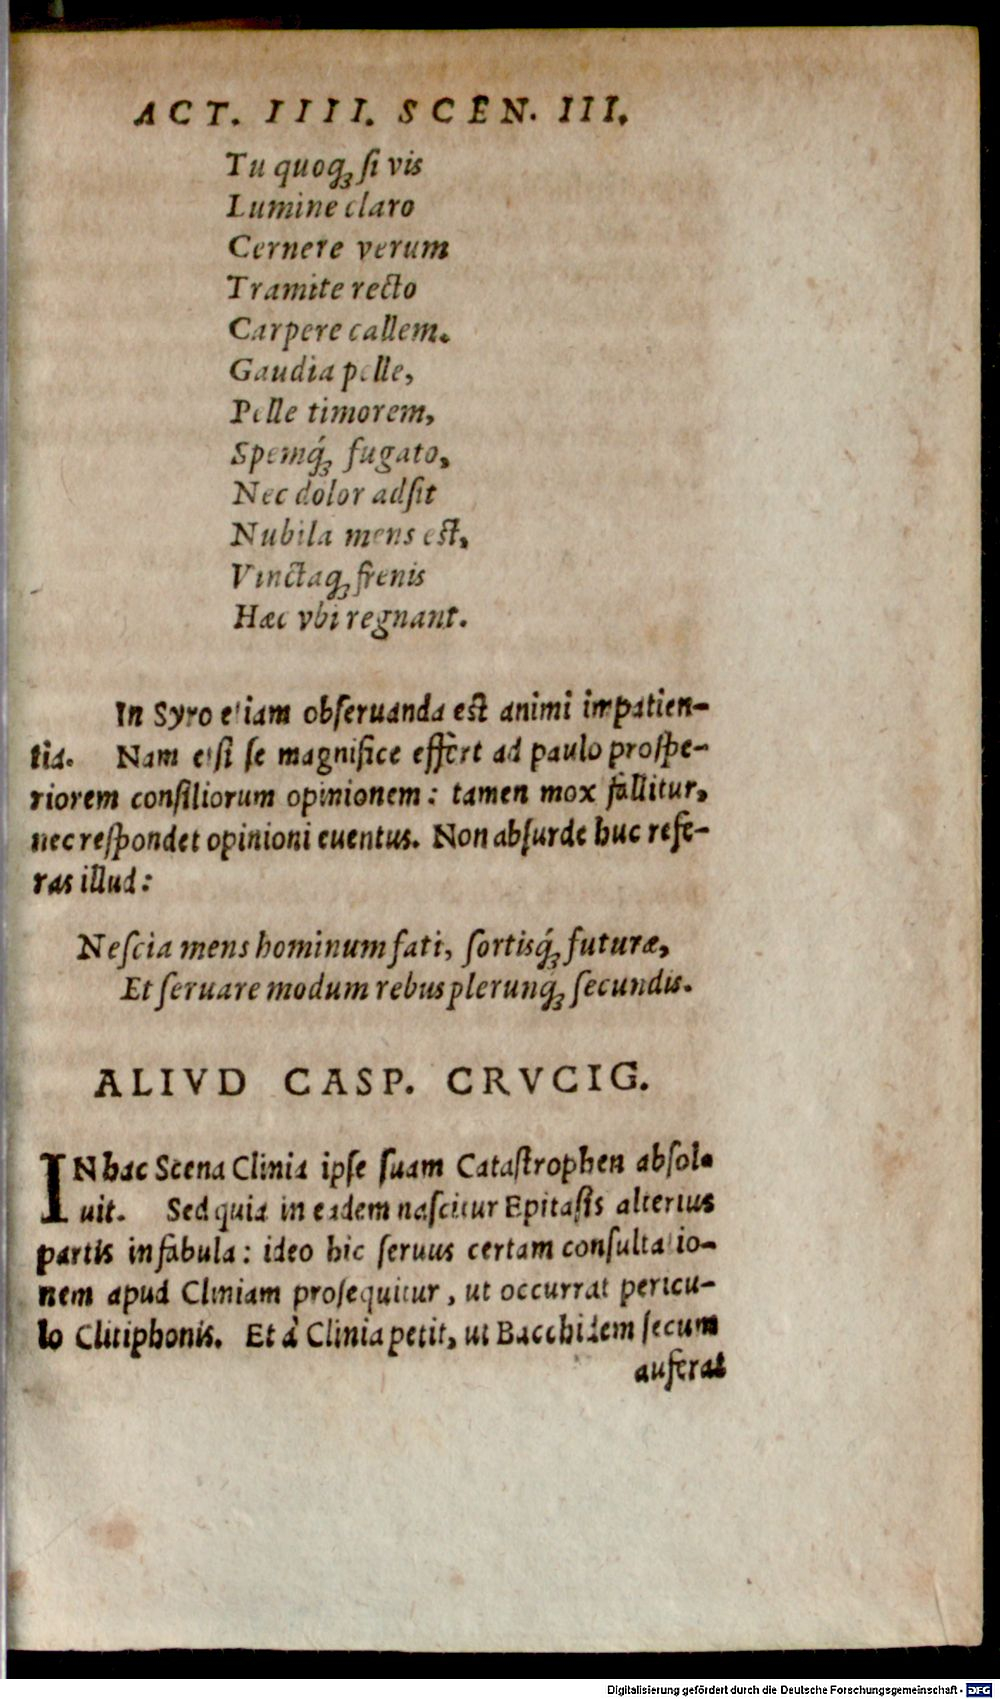 ACT. IIII. SCEN. III.
Tu quoqꝫ ſi vis
Lumine claro
Cernere verum
Tramite recto
Carpere callem.
Gaudia pelle,
Pelle timorem,
Spemq́ꝫ fugato,
Nec dolor adſit
Nubila mens est,
Vinctaqꝫ frenis
Hæc vbi regnant.
In Syro etiam obſeruanda est animi impatien-
tia. Nam etſi ſe magnifice effert ad paulo proſpe-
riorem conſiliorum opinionem: tamen mox fallitur,
nec reſpondet opinioni euentus. Non abſurde huc refe-
ras illud:
Neſcia mens hominum fati, ſortisq́ꝫ futuræ,
Et ſeruare modum rebus plerunq́ꝫ ſecundis.
ALIVD CASP. CRVCIG.
IN hac Scena Clinia ipſe ſuam Cataſtrophen abſol-
uit. Sed quia in eadem naſcitur Epitaſis alterius
partis in fabula: ideo hic ſeruus certam conſultatio-
nem apud Cliniam proſequitur, ut occurrat pericu-
lo Clitiphonis. Et à Clinia petit, ut Bacchidem ſecum
auferat
Digitalisierung gefördert durch die Deutsche Forschungsgemeinschaft - DFG